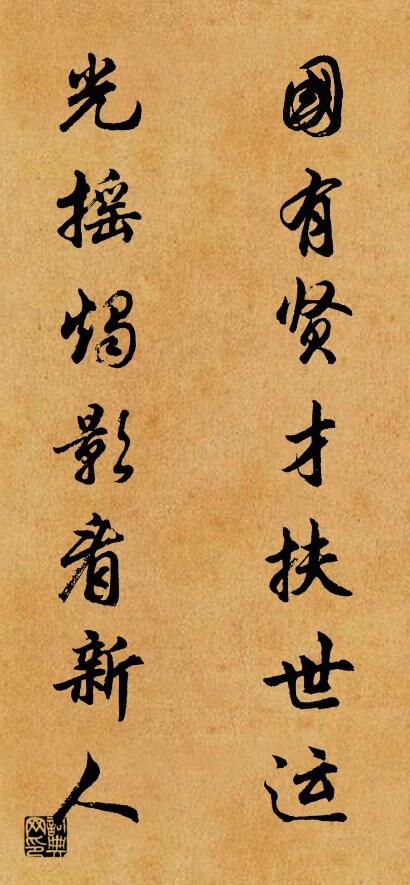 國有贤才扶世运
光摇烛影看新人